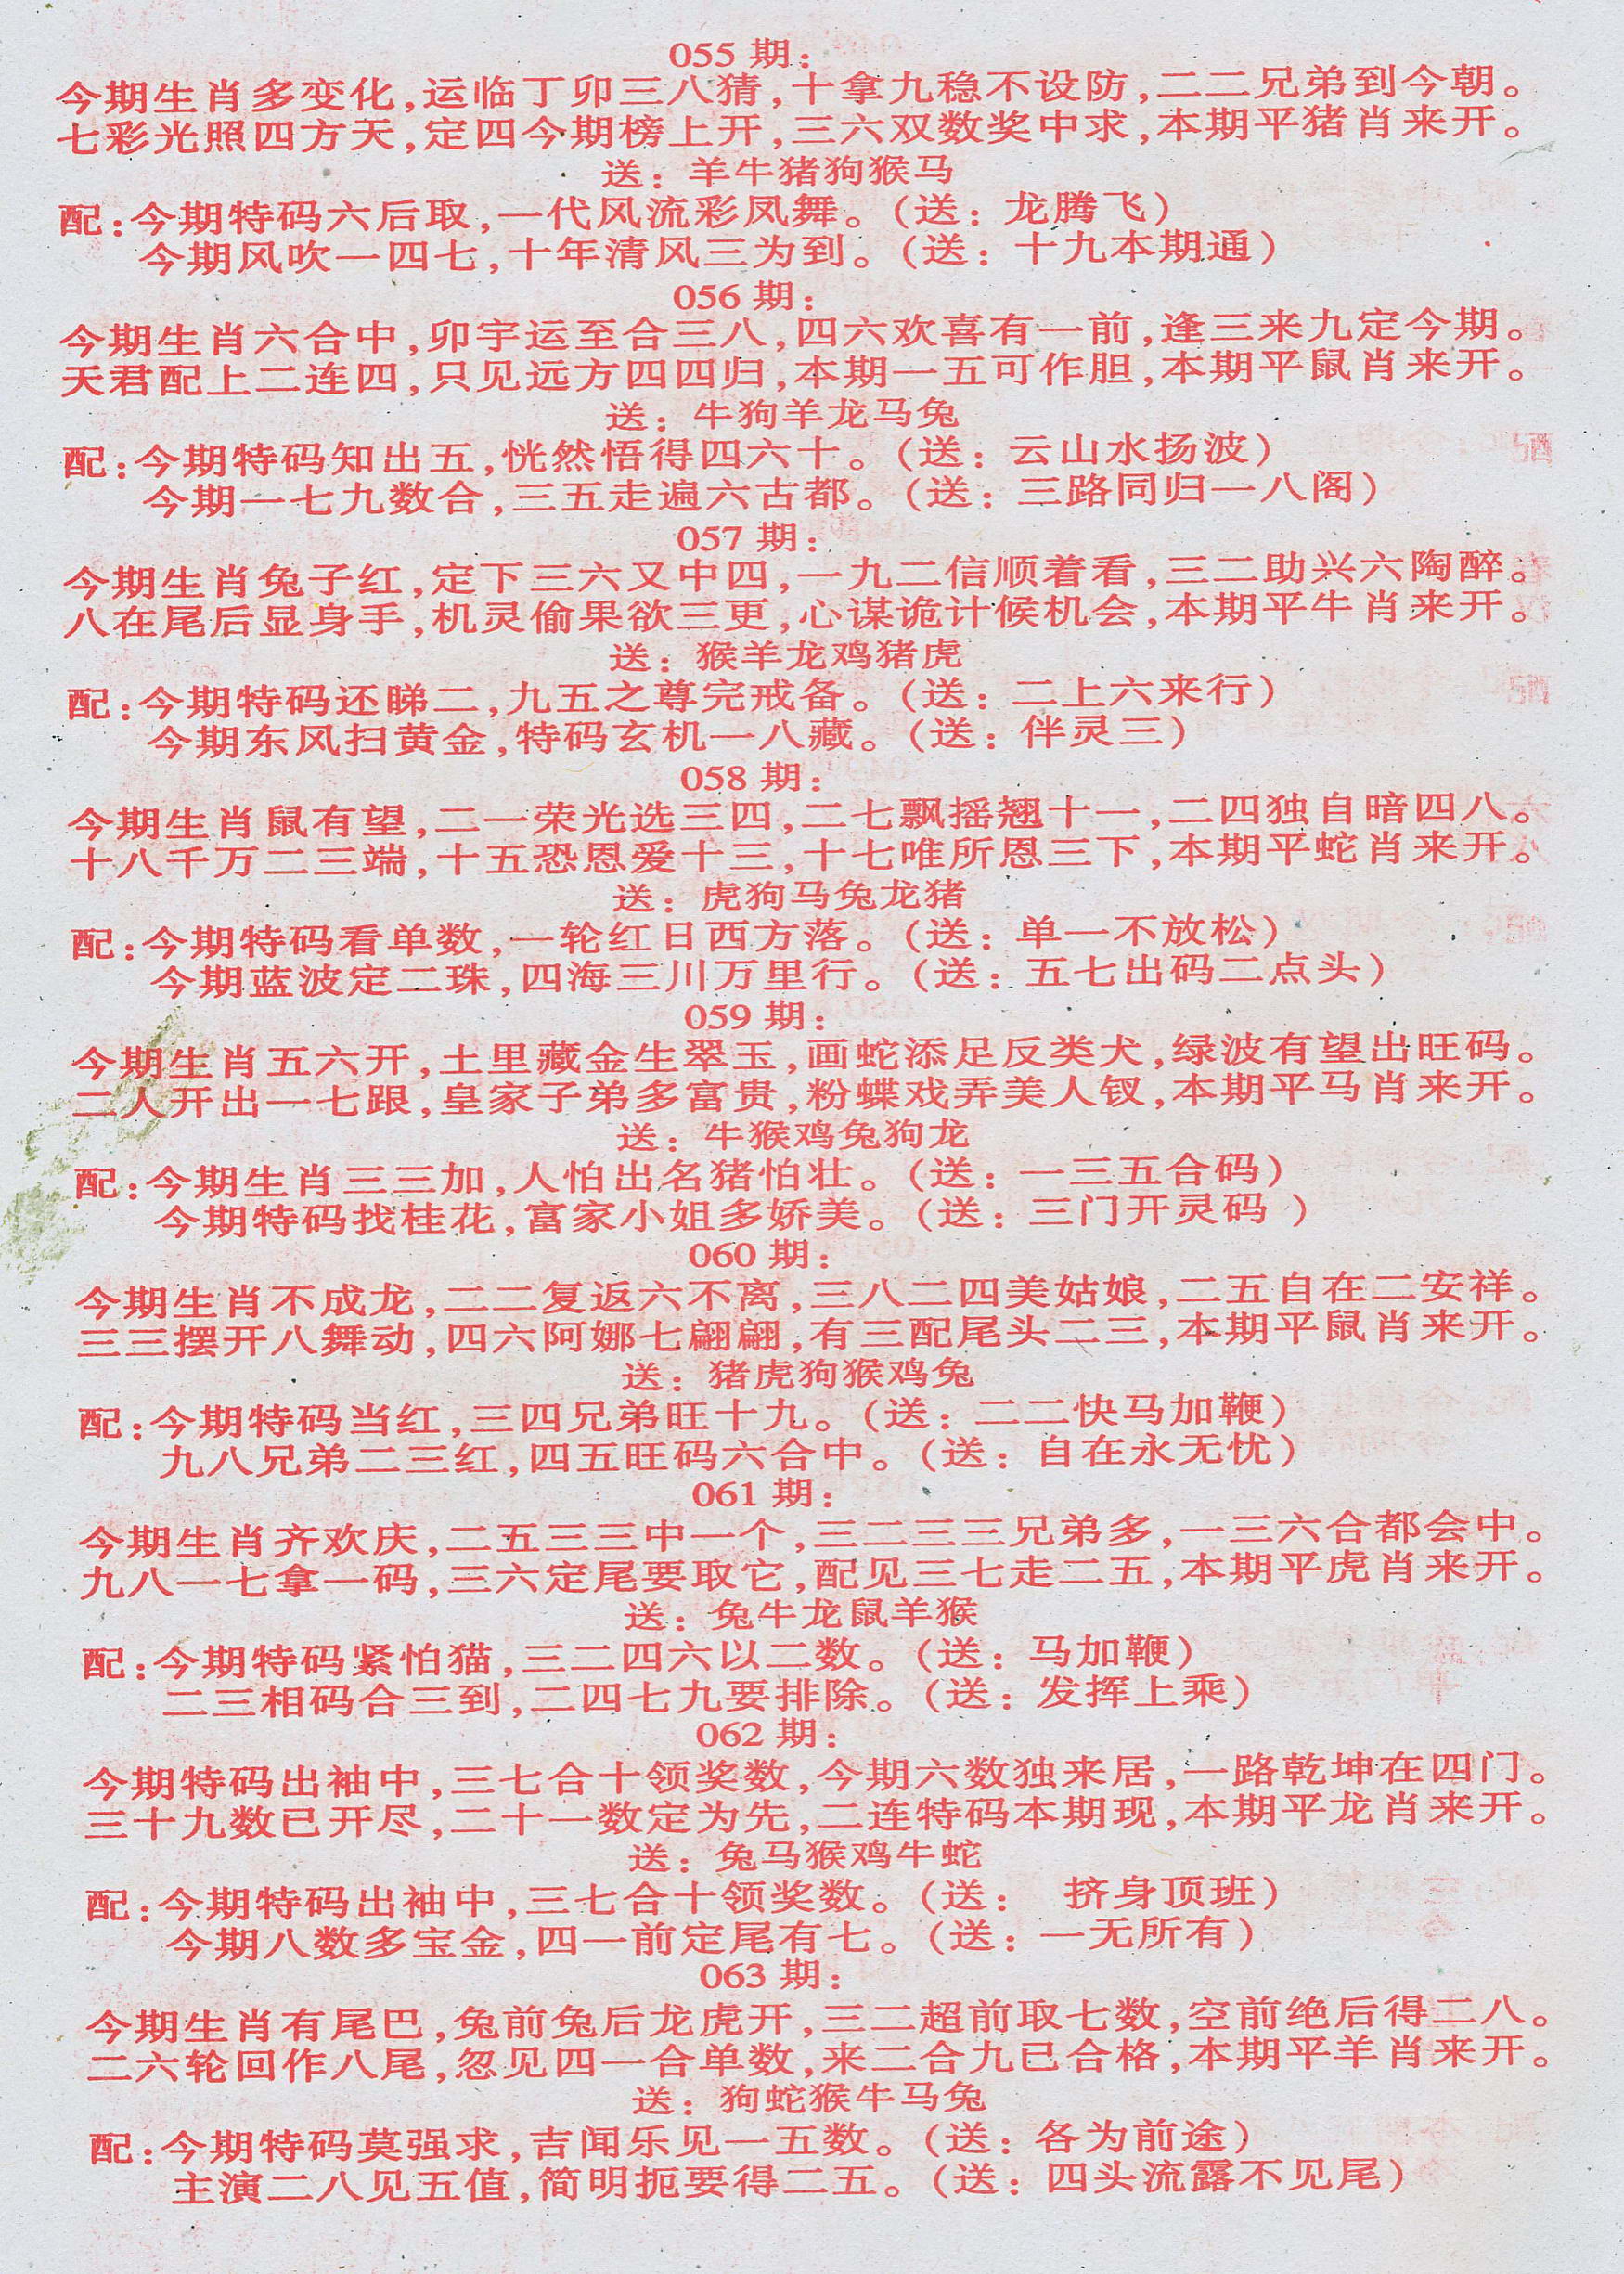 055 期：
今期生肖多变化,运临丁卯三八猜,十拿九稳不设防,二二兄弟到今朝。
七彩光照四方天,定四今期榜上开,三六双数奖中求,本期平猪肖来开。
送：羊牛猪狗猴马
配：今期特码六后取,一代风流彩凤舞。（送：龙腾飞）
今期风吹一四七,十年清风三为到。（送：十九本期通）
056 期：
今期生肖六合中,卯宇运至合三八,四六欢喜有一前,逢三来九定今期。
天君配上二连四,只见远方四四归,本期一五可作胆,本期平鼠肖来开。
送：牛狗羊龙马兔
配：今期特码知出五,恍然悟得四六十。（送：云山水扬波）
今期一七九数合,三五走遍六古都。（送：三路同归一八阁）
057 期：
今期生肖兔子红,定下三六又中四,一九二信顺着看,三二助兴六陶醉。
八在尾后显身手,机灵偷果欲三更,心谋诡计候机会,本期平牛肖来开。
送：猴羊龙鸡猪虎
配：今期特码还睇二,九五之尊完戒备。（送：二上六来行）
今期东风扫黄金,特码玄机一八藏。（送：伴灵三）
058 期：
今期生肖鼠有望,二一荣光选三四,二七飘摇翘十一,二四独自暗四八。
十八千万二三端,十五恐恩爱十三,十七唯所恩三下,本期平蛇肖来开。
送：虎狗马兔龙猪
配：今期特码看单数,一轮红日西方落。（送：单一不放松）
今期蓝波定二珠,四海三川万里行。（送：五七出码二点头）
059 期：
今期生肖五六开,土里藏金生翠玉,画蛇添足反类犬,绿波有望出旺码。
二人开出一七跟,皇家子弟多富贵,粉蝶戏弄美人钗,本期平马肖来开。
送：牛猴鸡兔狗龙
配：今期生肖三三加,人怕出名猪怕壮。（送：一三五合码）
今期特码找桂花,富家小姐多娇美。（送：三门开灵码 ）
060 期：
今期生肖不成龙,二二复返六不离,三八二四美姑娘,二五自在二安祥。
三三摆开八舞动,四六阿娜七翩翩,有三配尾头二三,本期平鼠肖来开。
送：猪虎狗猴鸡兔
配：今期特码当红,三四兄弟旺十九。（送：二二快马加鞭）
九八兄弟二三红,四五旺码六合中。（送：自在永无忧）
061 期：
今期生肖齐欢庆,二五三三中一个,三二三三兄弟多,一三六合都会中。
九八一七拿一码,三六定尾要取它,配见三七走二五,本期平虎肖来开。
送：兔牛龙鼠羊猴
配：今期特码紧怕猫,三二四六以二数。（送：马加鞭）
二三相码合三到,二四七九要排除。（送：发挥上乘）
062 期：
今期特码出袖中,三七合十领奖数,今期六数独来居,一路乾坤在四门。
三十九数已开尽,二十一数定为先,二连特码本期现,本期平龙肖来开。
送：兔马猴鸡牛蛇
配：今期特码出袖中,三七合十领奖数。（送： 挤身顶班）
今期八数多宝金,四一前定尾有七。（送：一无所有）
063 期：
今期生肖有尾巴,兔前兔后龙虎开,三二超前取七数,空前绝后得二八。
二六轮回作八尾,忽见四一合单数,来二合九已合格,本期平羊肖来开。
送：狗蛇猴牛马兔
配：今期特码莫强求,吉闻乐见一五数。（送：各为前途）
主演二八见五值,简明扼要得二五。（送：四头流露不见尾）